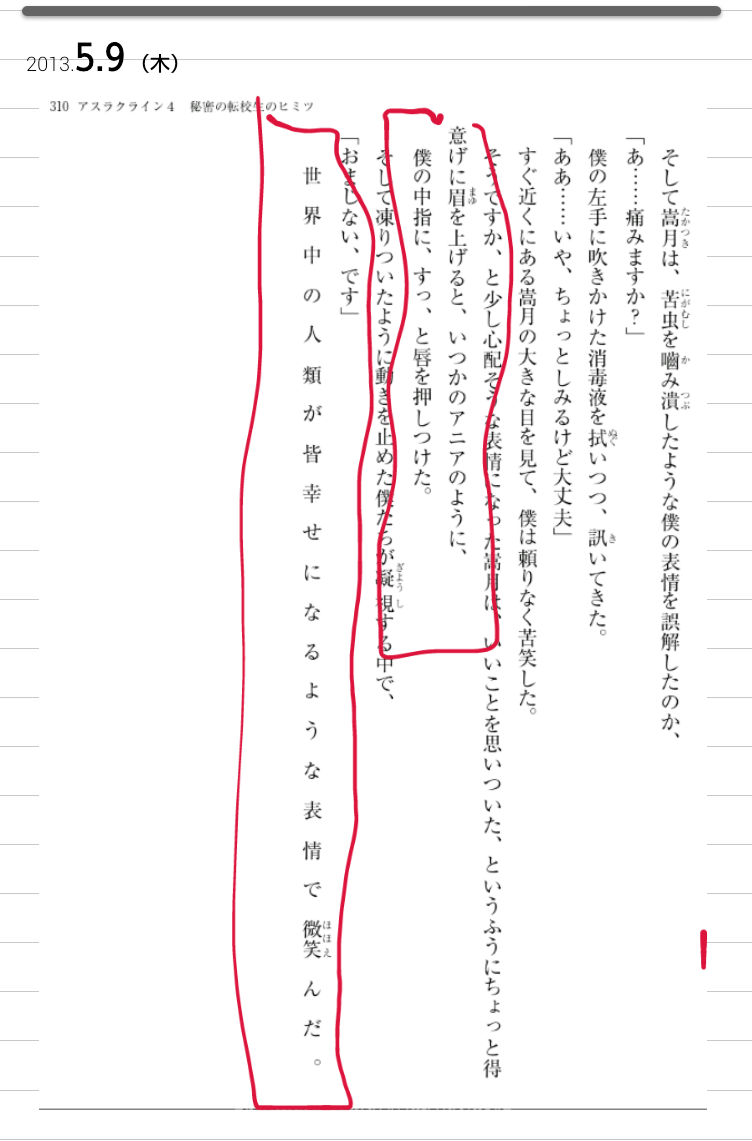 2013.5.9（木）
310 アスラクライン４ 秘密の転校生のヒミツ
そして嵩月は、苦虫を嚙み潰したような僕の表情を誤解したのか、
「あ……痛みますか？」
僕の左手に吹きかけた消毒液を拭いつつ、訊いてきた。
「ああ……いや、ちょっとしみるけど大丈夫」
すぐ近くにある嵩月の大きな目を見て、僕は頼りなく苦笑した。
そうですか、と少し心配そうな表情になった嵩月は、いいことを思いついた、というふうにちょっと得
意げに眉を上げると、いつかのアニアのように、
僕の中指に、すっ、と唇を押しつけた。
そして凍りついたように動きを止めた僕たちが凝視する中で、
「おまじない、です」
世界中の人類が皆幸せになるような表情で微笑んだ。